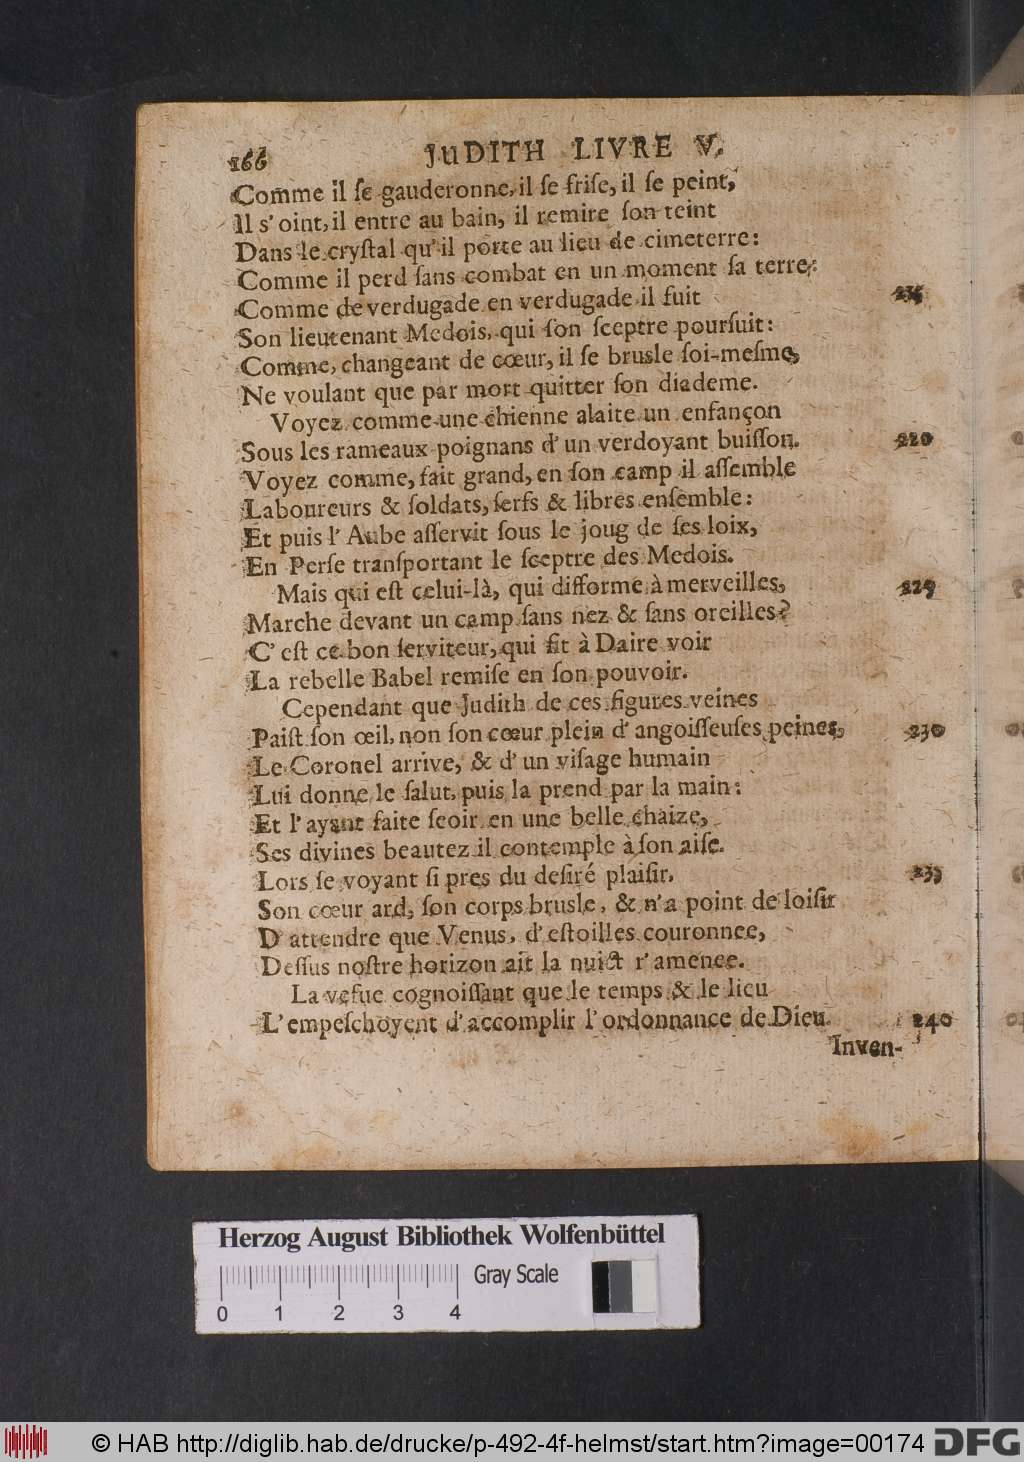 166 JUDITH LIVRE V.
Comme il ſe gauderonne, il ſe friſe, il ſe peint,
Il s'oint, il entre au bain, il remire ſon teint
Dans le cryſtal qu'il porte au lieu de cimeterre:
Comme il perd ſans combat en un moment ſa terre:
Comme de verdugade en verdugade il fuit 215
Son lieutenant Medois, qui ſon ſceptre pourſuit:
Comme, changeant de cœur, il ſe brusle ſoi-meſme,
Ne voulant que par mort quitter ſon diademe.
Voyez comme une chienne alaite un enfançon
Sous les rameaux poignans d'un verdoyant buiſſon. 220
Voyez comme, fait grand, en ſon camp il aſſemble
Laboureurs & ſoldats, ſerfs & libres enſemble:
Et puis l'Aube aſſervit ſous le joug de ſes loix,
En Perſe tranſportant le ſceptre des Medois.
Mais qui eſt celui-là, qui difforme à merveilles, 225
Marche devant un camp ſans nez & ſans oreilles?
C'eſt ce bon ſerviteur, qui fit à Daire voir
La rebelle Babel remiſe en ſon pouvoir.
Cependant que Judith de ces figures veines
Paiſt ſon œil, non ſon cœur plein d'angoiſſeuſes peines, 230
Le Coronel arrive, & d'un viſage humain
Lui donne le ſalut, puis la prend par la main:
Et l'ayant faite ſeoir en une belle chaize,
Ses divines beautez il contemple à ſon aiſe.
Lors ſe voyant ſi pres du deſiré plaiſir, 235
Son cœur ard, ſon corps brusle, & n'a point de loiſir
D'attendre que Venus, d'eſtoilles couronnee,
Deſſus noſtre horizon ait la nuict r'amenee.
La vefue cognoiſſant que le temps & le lieu
L'empeſchoyent d'accomplir l'ordonnance de Dieu. 240
Inven-
Herzog August Bibliothek Wolfenbüttel
Gray Scale
0 1 2 3 4
© HAB http://diglib.hab.de/drucke/p-492-4f-helmst/start.htm?image=00174 DFG